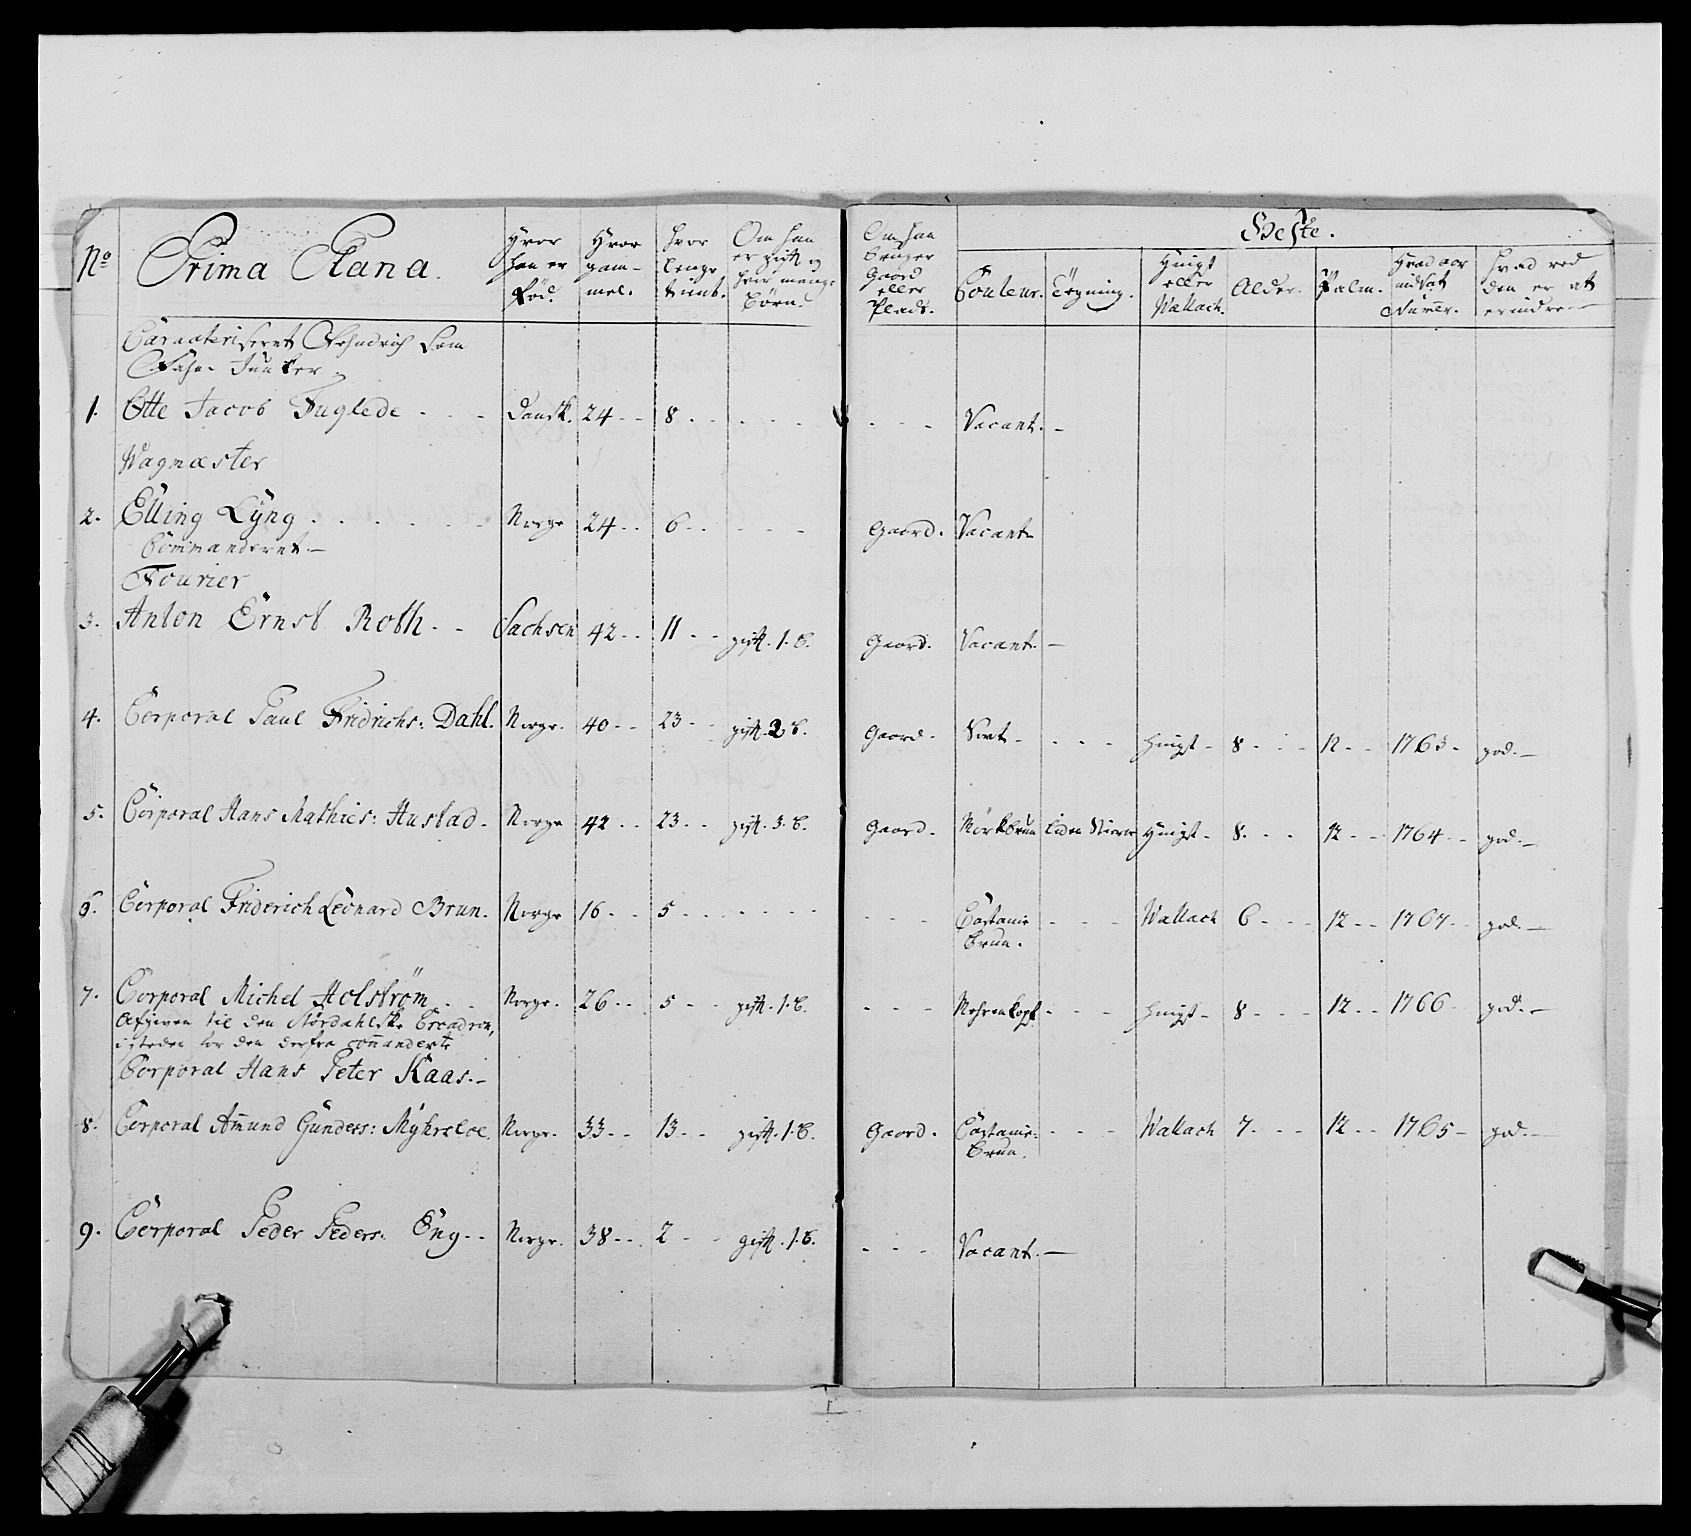 No Prima Plana. Hvor han er Fød. Hvor gam- mel. hvor lenge tient. Om han er gift og hvor mange børn. Om han bruger Gaord eller Plads. Heste. Couleur. Tegning. Hingst eller Wallach. Alder. Palm. Hvad aar indsat Numer. Hvad ved den er at erindre
Caracteriseret Fehndrich som
Fahn-Junker
1. Otte Jacob Fuglede - - - Dansk. 24 - - 8 - - - - - - - - Vacant. -
Wagmæster
2. Elling Lÿng . . . . . Norge 24 - - 6 - - - - - Gaord. Vacant -
Commanderet -
Fourier
3. Anton Ernst Roth - - Sachsen 42 - - 11 - - gift. 1. B. Gaord. Vacant. -
4. Corporal Paul Fridrichs: Dahl. Norge. 40 - - 23 - - gift. 2 B. Gaord - Sort - - - - Hingst - 8 - - - 12 - - 1763 - god. -
5. Corporal Hans Mathies: Hustad - Norge 42 - - 23 - - gift. 3. B. Gaord. Mörkbrun liden Stierne Hingst - 8 - - - 12 - - 1764 - - god. -
6. Corporal Friderich Leonard Brun. Norge 16 - - 5 - - - - - - - - - Castanie brun. - - - Wallach 6 - - - 12 - - 1767 - - god. -
7. Corporal Michel Holström - - Norge. 26 - - 5 - - gift. 1. B. - - - Mohrenkopf - - - Hingst - 8 - - - 12 - - 1766 - god. -
Afgiven til den Størdahlske Escadron,
i steden for den derfra commanderte
Corporal Hans Peter Kaas. -
8. Corporal Amund Gunders: Mÿhrsloe. Norge. 33 - - 13 - - gift. 1. B. Gaord. Castanie- brun. - - - Wallach 7 - - - 12 - - 1765 - god. -
9. Corporal Peder Peders: Eng - - Norge. 38 - - 2 - - gift. 1. B. - - - Vacant. -